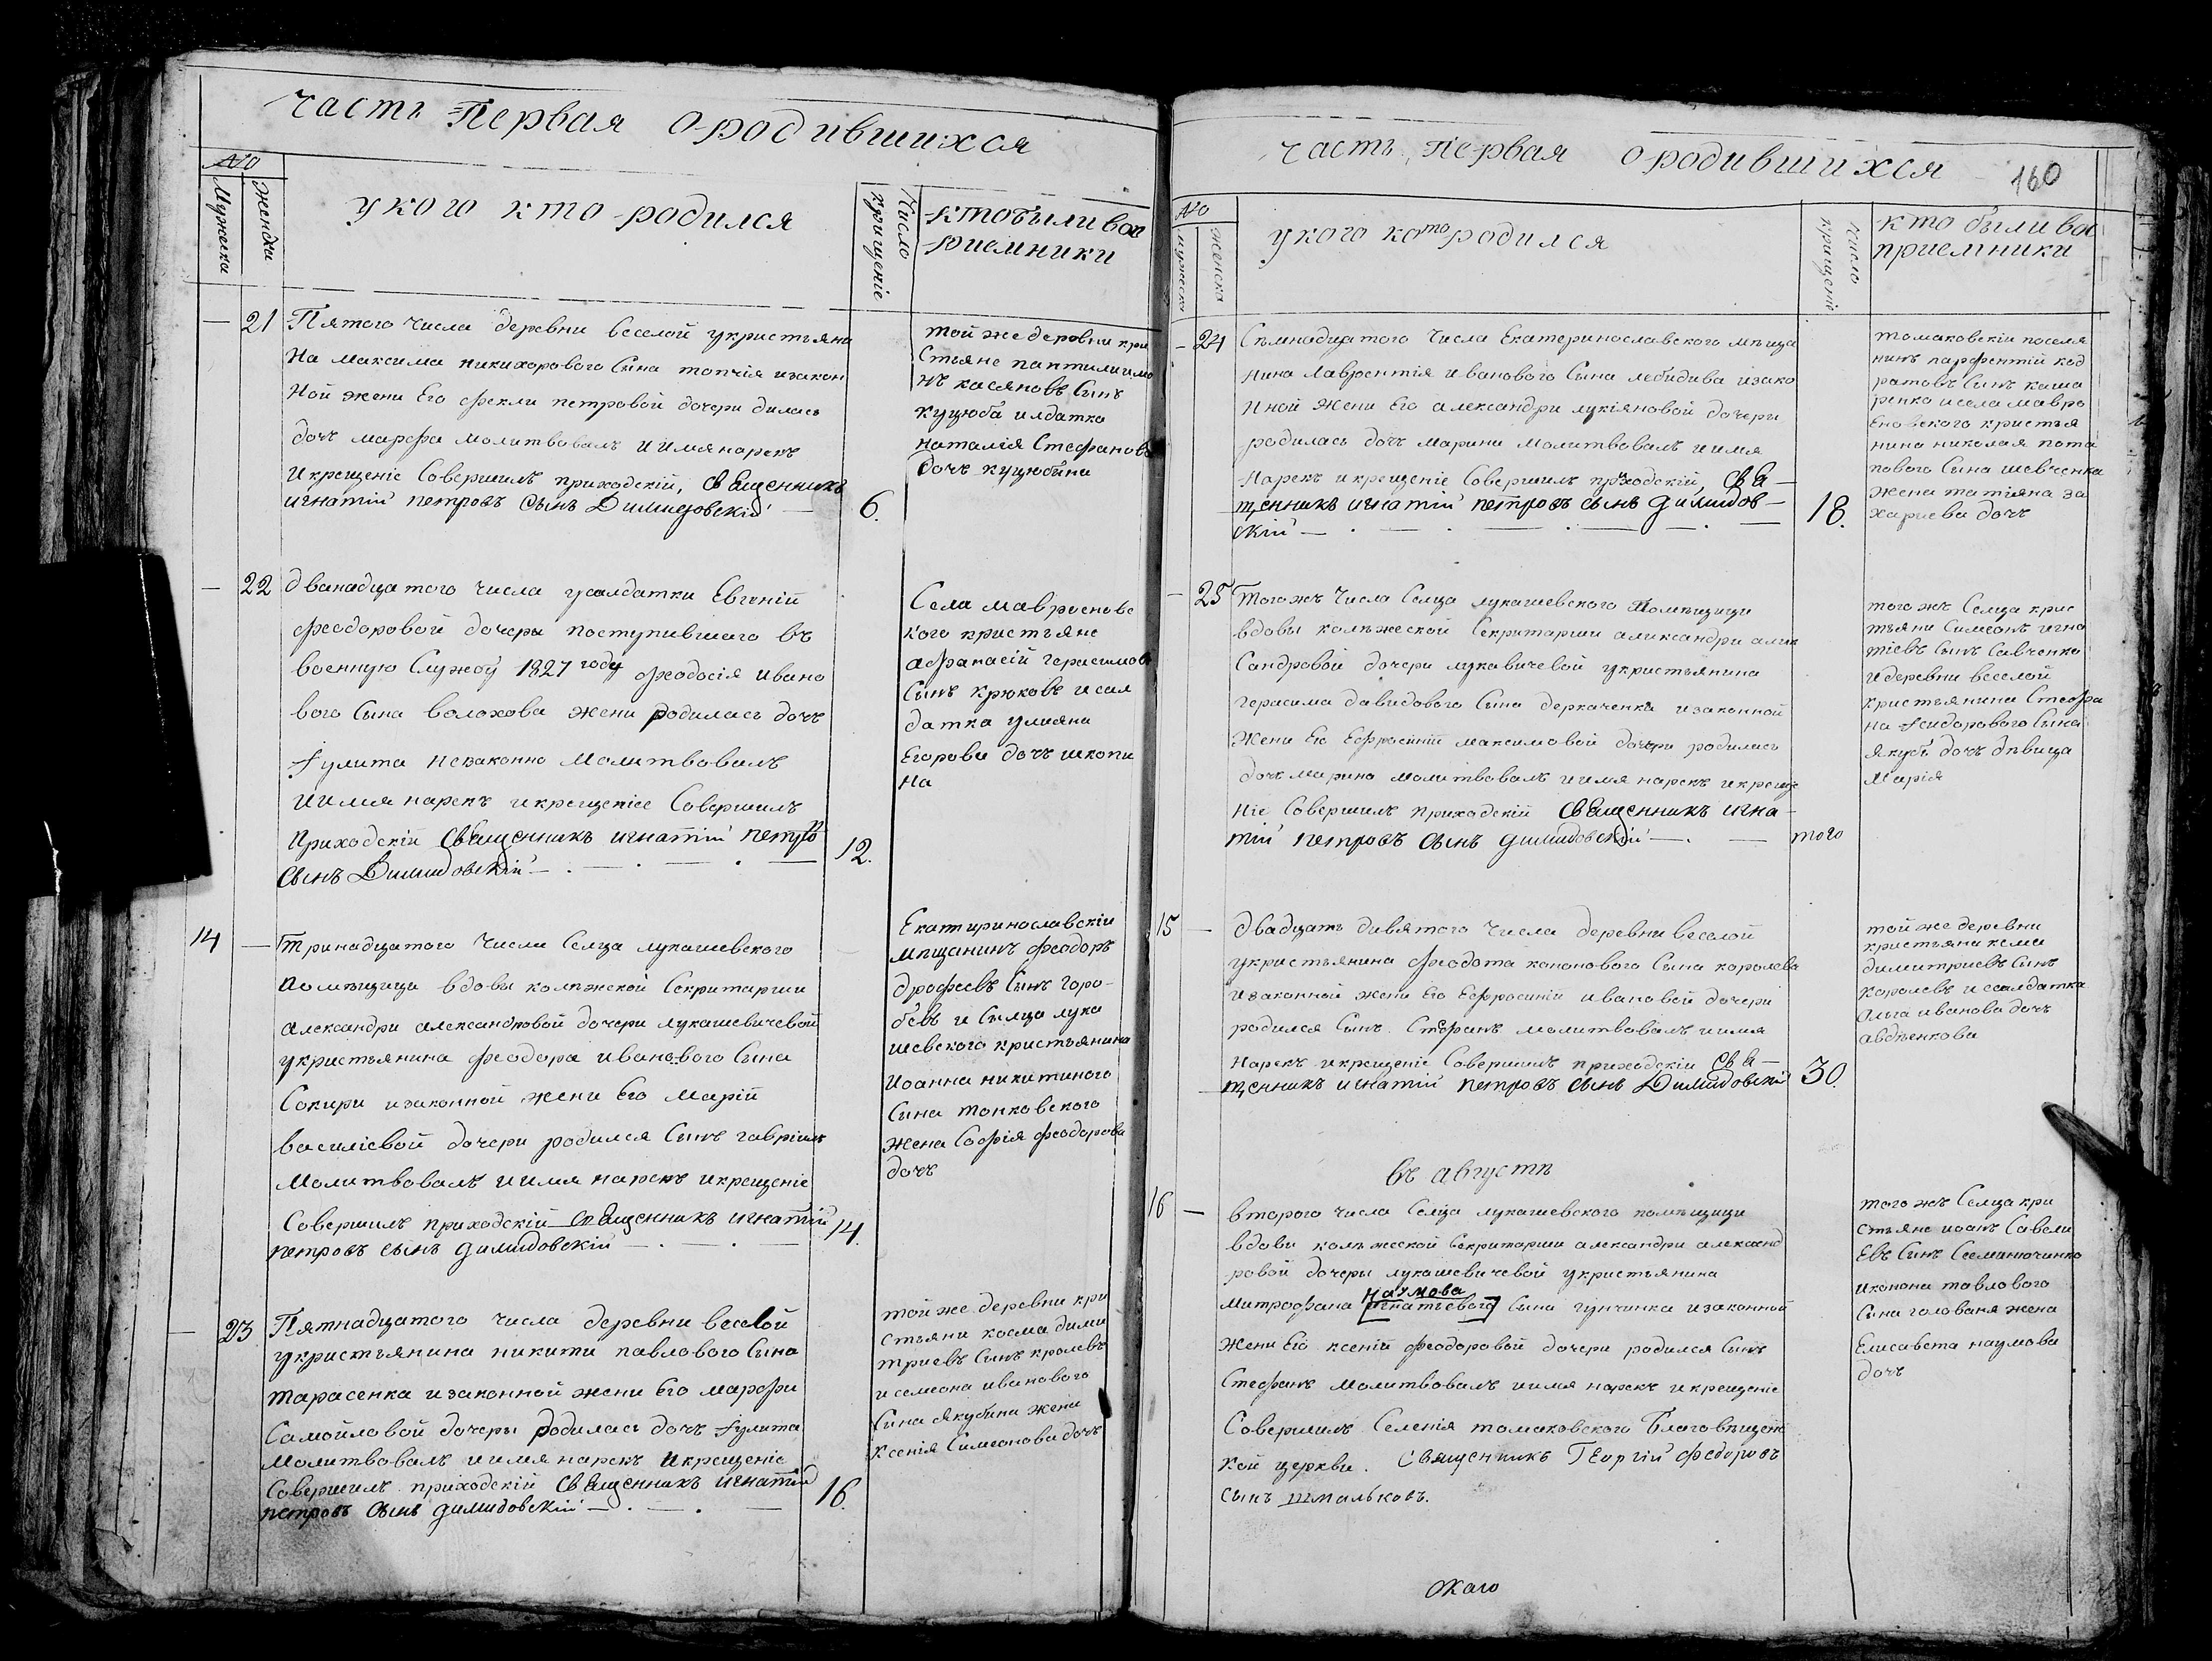 Часть Первая ородившихся
No
Мужеска
женска
укого кто родился
Число
крищеніе
ктобыли вос
приемники
— 21 Пятого числа деревни веселой укристьяни
на максима никихорового Сына топчія изакон
Ной жени Его фекли петровой дочери дилась
дочъ марфа молитвовалъ иимянарекъ
икрещеніе Совершилъ приходскій, священникъ
игнатій петровъ сынъ Димидовскій —
6.
той жедеровни кри
Стьяне пантилиимо
нъ касяновъ Сынъ
куцюба илдатка
наталія Стефанова
дочъ куцюбина
— 22 дванадцатого числа усолдатки Евгеній
феодоровой дочеры поступившаго въ
военную Служоу 1827 году феодосія ивано
вого Сына волохова жени родилась дочъ
іулита незаконно молитвовалъ
иимя нарекъ икрещеніее Совершилъ
приходскій священникъ игнатій петро
сынъ Димидовскій —
12.
Села мавроеновс
кого кристьяне
афанасій герасимовъ
Сынъ крюковъ исол
датка улияна
Егорова дочъ шкопи
на
14 — Тринадцатого числа Селца лукашевского
помѣщици вдовы колѣжской Секритарши
александри александровой дочери лукашевичевой
укристьянина феодора иванового Сына
Сокири изаконной жени Его Марій
василіевой дочери родился Сынъ гавріилъ
Молитвовалъ иимя нарекъ икрещеніе
Совершилъ приходскій священникъ игнатій
петровъ сынъ димидовскій —
14.
Екатиринославскіи
мѣщанинъ феодоръ
дрофеевъ Сынъ горо
бевъ и Сѣлца лука
шевского кристьянина
Иоанна никитиного
Сина тонковского
жена Софія феодорова
дочъ
— 23 Пятнадцатого числа деревни веселой
укристьянина никити павлового Сына
тарасенка изаконной жени Его марфи
Самойловой дочеры родилась дочъ іулита
молитвовалъ иимя нарекъ икрещеніе
Совершилъ приходскій священникъ игнатій
петровъ сынъ димидовскій —
16.
той же деревни кри
стьяни косма дими
триевъ Сынъ кролевъ
исемеона иванового
Сина якубини жени
ксенія Симеонова дочъ
часть первая ородившихся
160
No
мужеско
женска
укого кото родился
число
крищеніе
кто были вос
приемники
— 24 Сѣмнадцатого числа Екатеринославского мѣща
нина лаврентія иванового Сына лебидива изако
нной жени Его александри лукіяновой дочери
родилась дочъ марини молитвовалъ иимя
нарекъ икрещеніе Совершилъ приходскій, свя
щенникъ игнатій петровъ сынъ димидов
скій —
18.
томаковскіи поселя
нинъ парфентій код
ратовъ Сынъ каша
ренко исела мавро
Еновского кристья
нина николая пота
пового Сина шевченка
жена татіяна за
хариева дочъ
— 25 Тогожъ числа Селца лукашевского помѣщици
вдовы колѣжеской Секритарши аликсандри алик
Сандровой дочери лукавичевой укристьянина
герасима давидового Сина деркаченка изаконной
жени Его Ефросініи максимовой дочери родилась
дочъ марина молитвовалъ иимя нарекъ икреще
ніе Совершилъ приходскій священникъ игна
тій петровъ сынъ димидовскій —
того
того жъ Селца крис
тьяни Симеонъ игна
тіевъ Сынъ Савченко
идеревни веселой
кристьянина Стефа
на ѵсидорового Сына
якубъ дочъ дѣвица
марія
15 — двадцать дивятого числа деревни веселой
укристьянина феодота кононового Сына королева
изаконной жени Его Ефросиній ивановой дочери
родился Сынъ Стефанъ молитвовалъ иимя
нарекъ икрещеніе Совершилъ приходскіи свя
щенникъ игнатій петровъ сынъ Димидовскій
30.
той же деревни
кристьяни косма
димитриевъ Сынъ
королевъ и солдатка
Ольга иванова дочъ
авдѣенкова
въ августѣ
16 — второго числа Селца лукашевского помѣщици
вдови колѣжеской Секритарши александри александ
ровой дочеры лукашевичевой укристьянина
Наумова
митрофана [игнатьевого] Сина гунчинка изаконной
жени Его ксеній феодоровой дочери родился Сынъ
Стефанъ молитвовалъ иимя нарекъ икрещеніе
Совершилъ Селенія томаковского Благовѣщенс
кой церкви. Священникъ Георгій Федоровъ
сынъ Шмальковъ.
того жъ Селца кри
стьяне иоанъ Савели
Евъ Сынъ Семинюченко
иконона павлового
Сина голованя жена
Елисавета наумова
дочъ
окаго